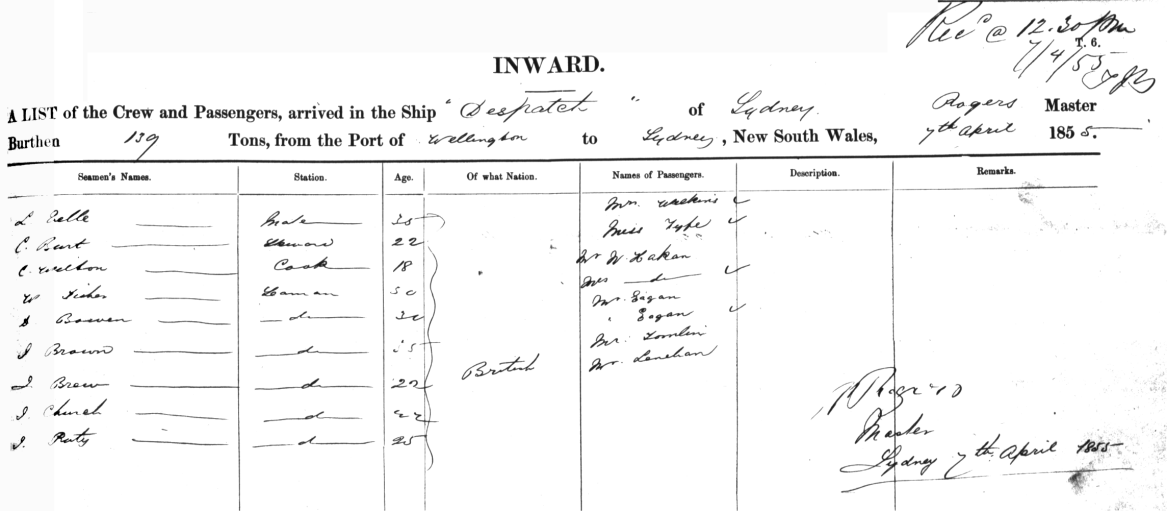 Rec^d @ 12.30 pm
T. 6.
7/4/55
INWARD.
A LIST of the Crew and Passengers, arrived in the Ship "Despatch" of Sydney. Rogers Master
Burthen 139 Tons, from the Port of Wellington to Sydney, New South Wales, 7th April 1855.
Seamen's Names. Station. Age. Of what Nation. Names of Passengers. Description. Remarks.
Mate 35
C. Burt Steward 22
C. Welton Cook 18
W Fisher Seaman 30
S Bowen do 30
J Brown do 35
J. Brew do 22
J. Church do
J. do 25
British
Mrs. Watkins
Miss
Mr W. Hakan
Mrs do
Mr. Eagan
" Eagan
Mr. Tomlin
Mr. Lenehan
Rogers
Master
Sydney 7th April 1855